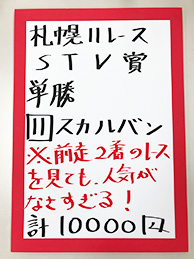 札幌11レース
STV賞
単勝
11スカルバン
※前走2着のレース
を見ても、人気が
なさすぎる!
計10000円